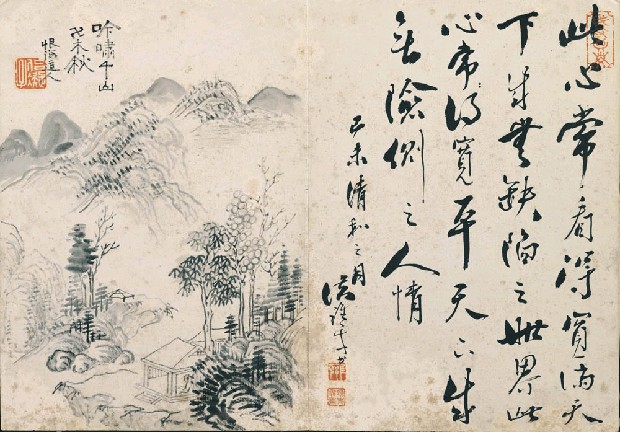 此心常看得圓滿天
下自無缺陷之世界此
心常得寬平天下自
無險側之人情
己未清和之月
吟嘯千山
己未秋
道人